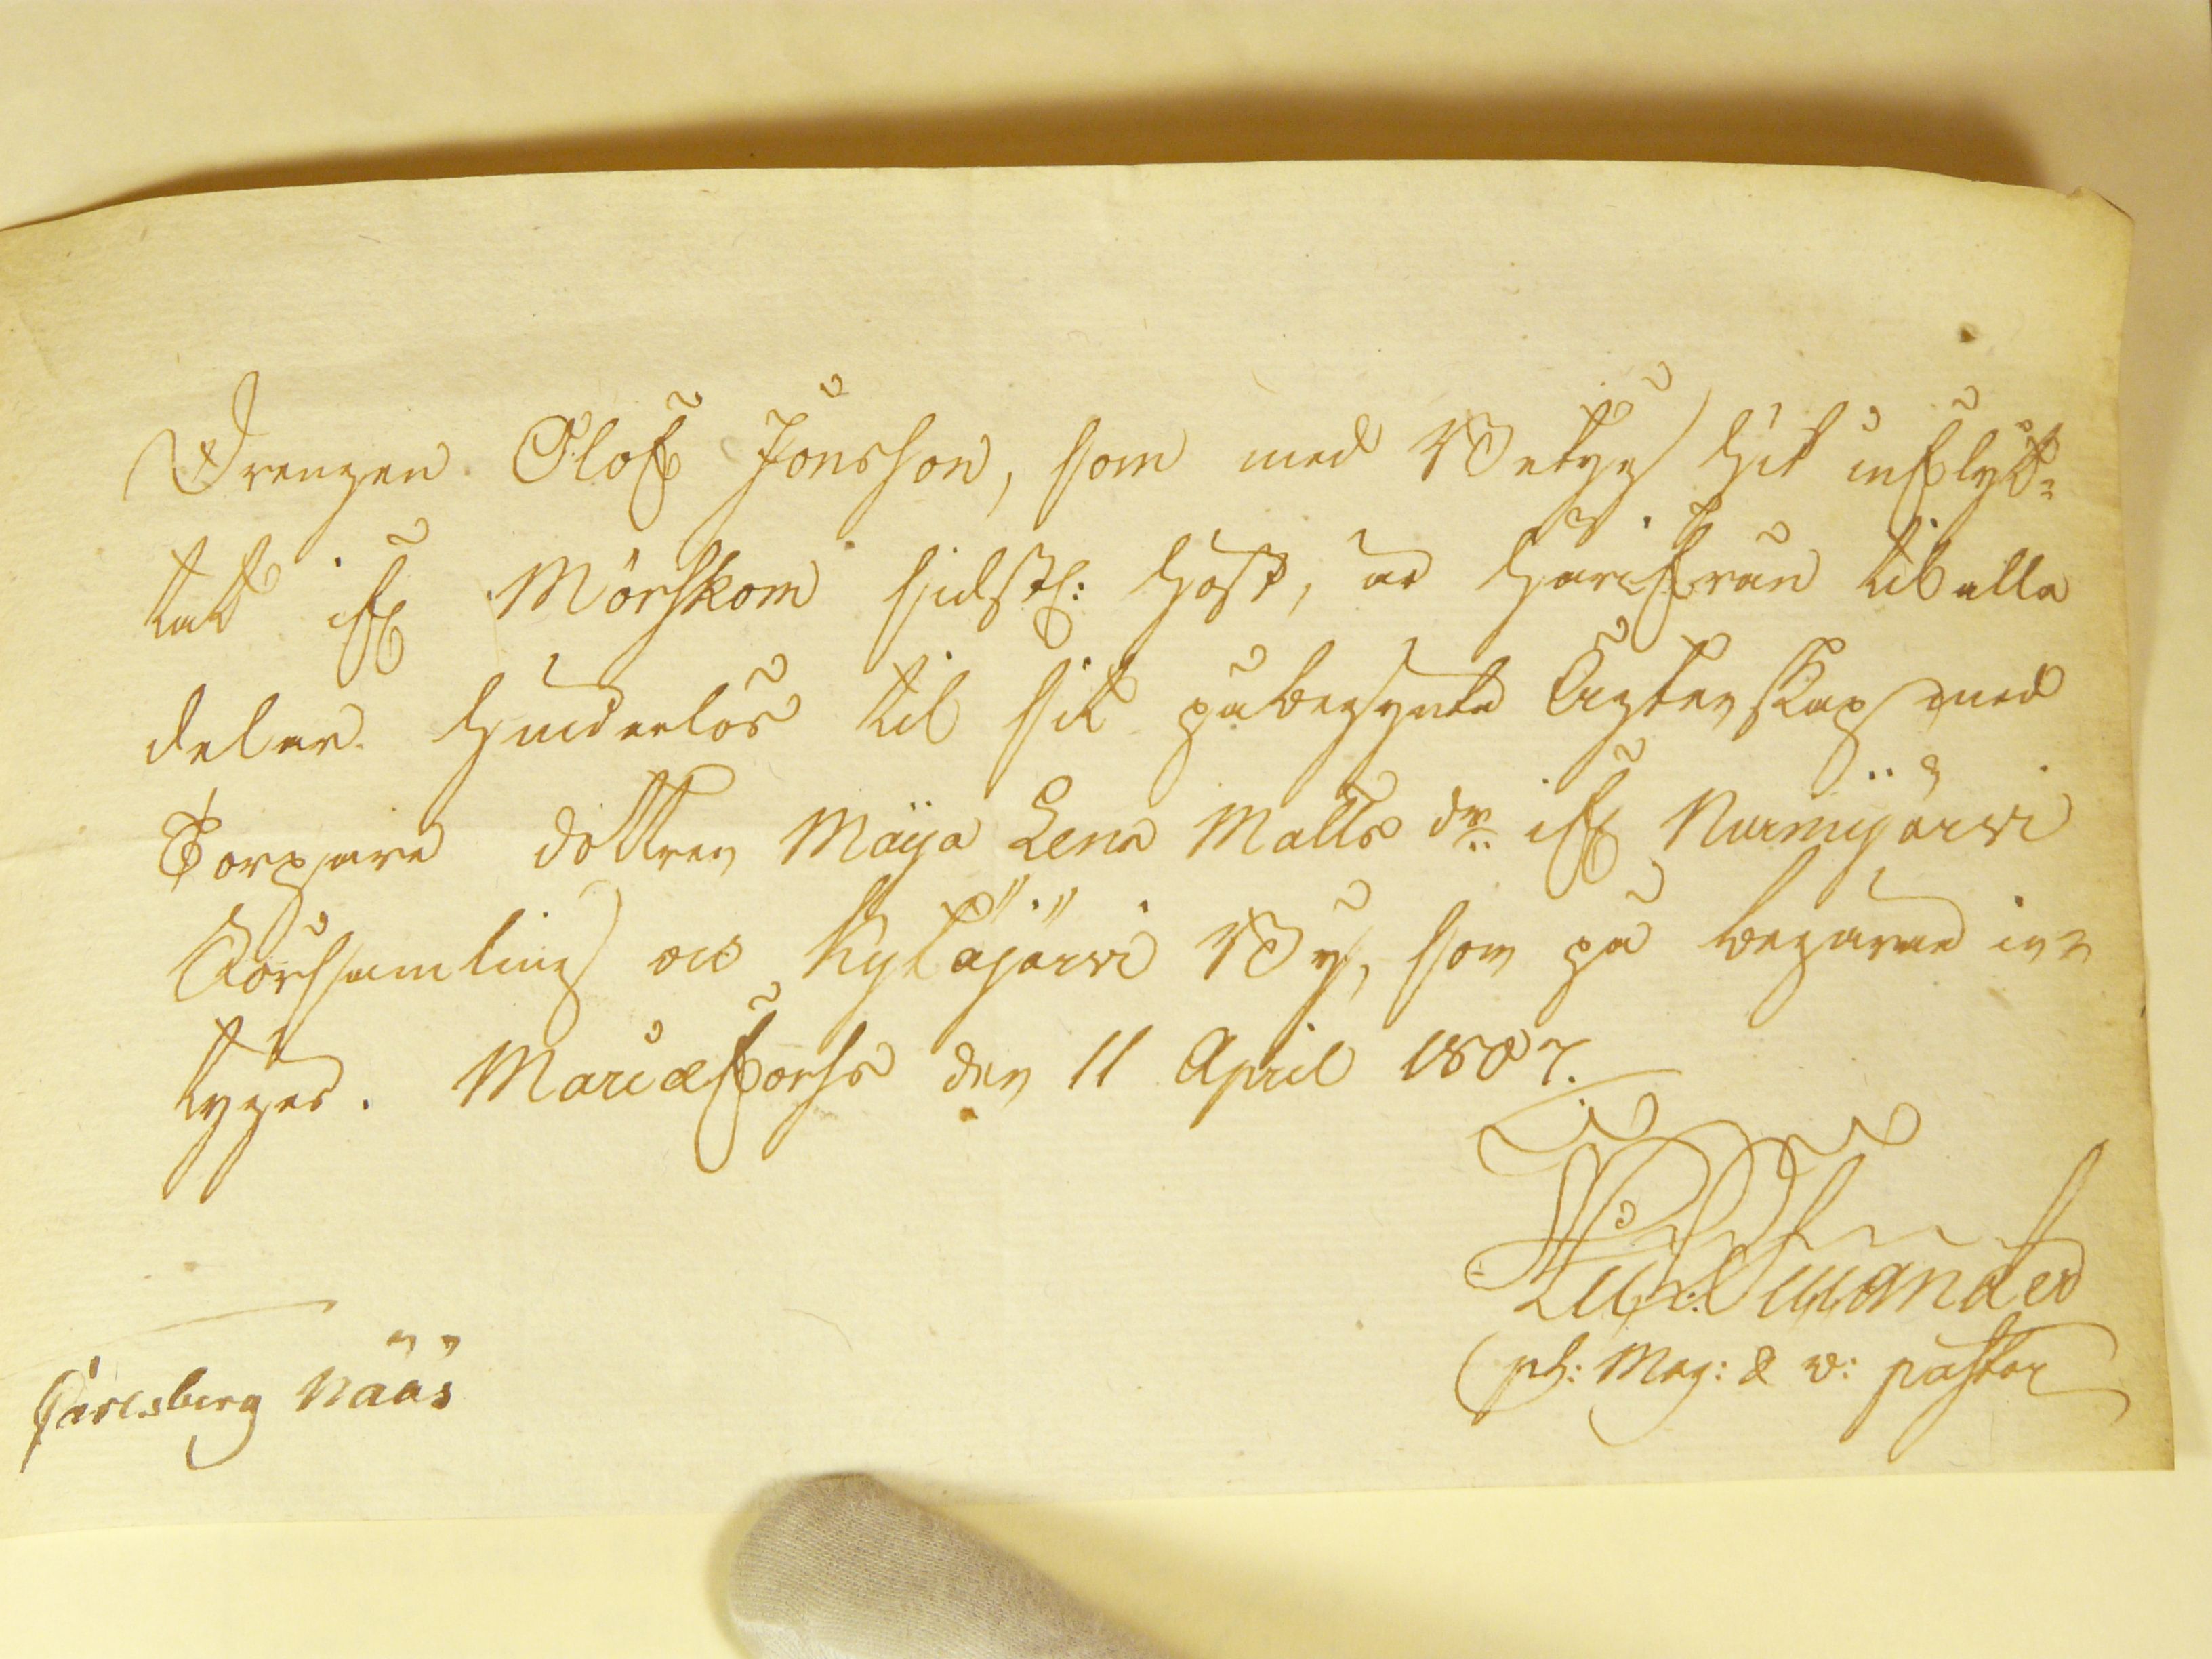 Drengen Olof Jönsson, som med Betyg hit inflyt-
tat ifr Mörskom sidstl: höst, är härifrån til alla
delar hinderlös til sit påbegynta Ägtenskap med
Torpare dottren Maija Lena Matts dr ifr Nurmijärvi
Församling oc Kytäjärvi By, som på begäran in-
tygas. Mariæfors den 11 April 1807.
ph: Mag: & v: pastor
Carlsberg Nääs